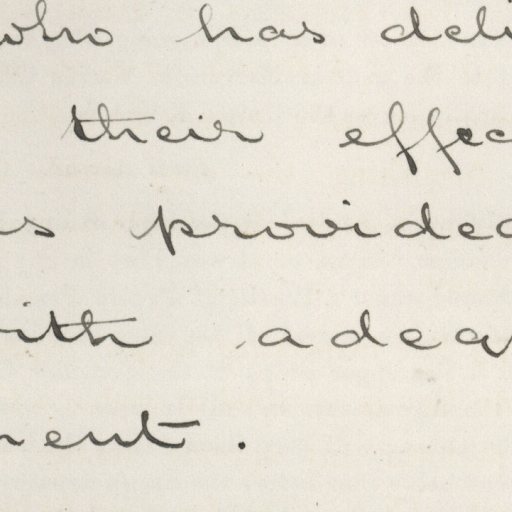 who has deli
their effec
as provided
with adeq
ment.